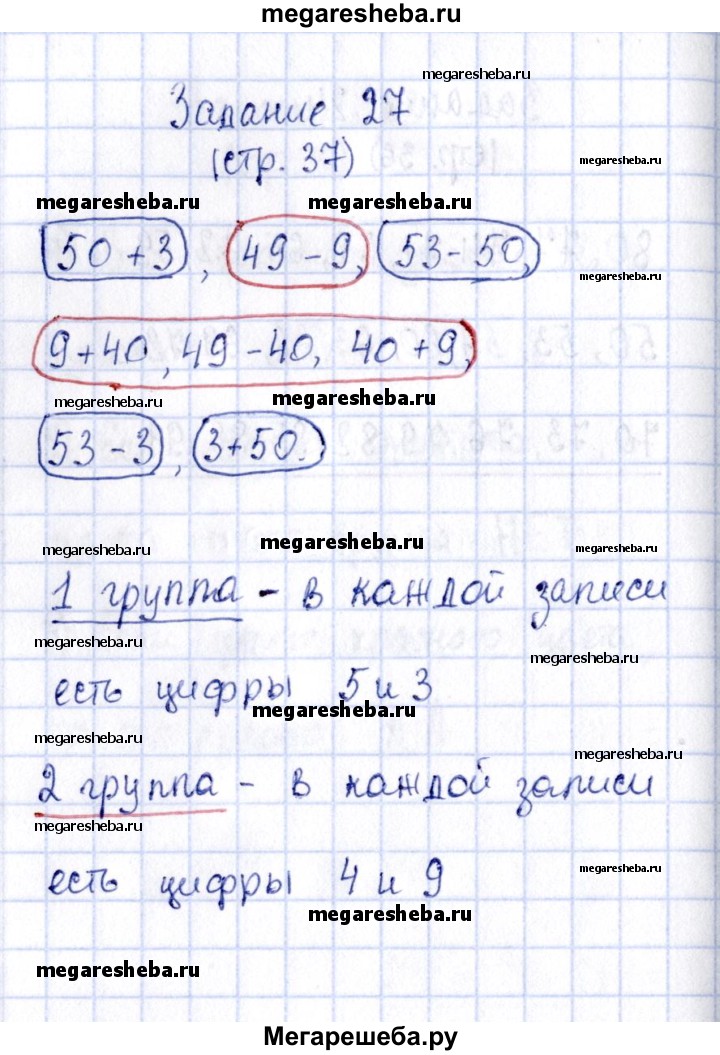 megaresheba.ru
megaresheba.ru
Задание 27
(стр. 37)
megaresheba.ru
megaresheba.ru megaresheba.ru
50 + 3, 49 - 9, 53 - 50,
megaresheba.ru
9 + 40, 49 - 40, 40 + 9,
megaresheba.ru megaresheba.ru
53 - 3, 3 + 50.
megaresheba.ru megaresheba.ru megaresheba.ru
1 группа - в каждой записи
megaresheba.ru
megaresheba.ru
есть цифры 5 и 3
megaresheba.ru
megaresheba.ru
megaresheba.ru
2 группа - в каждой записи
megaresheba.ru
есть цифры 4 и 9
megaresheba.ru
megaresheba.ru
megaresheba.ru
Мегарешеба.ру